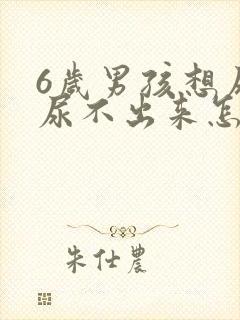 6歲男孩想
尿不出来怎
朱仕農